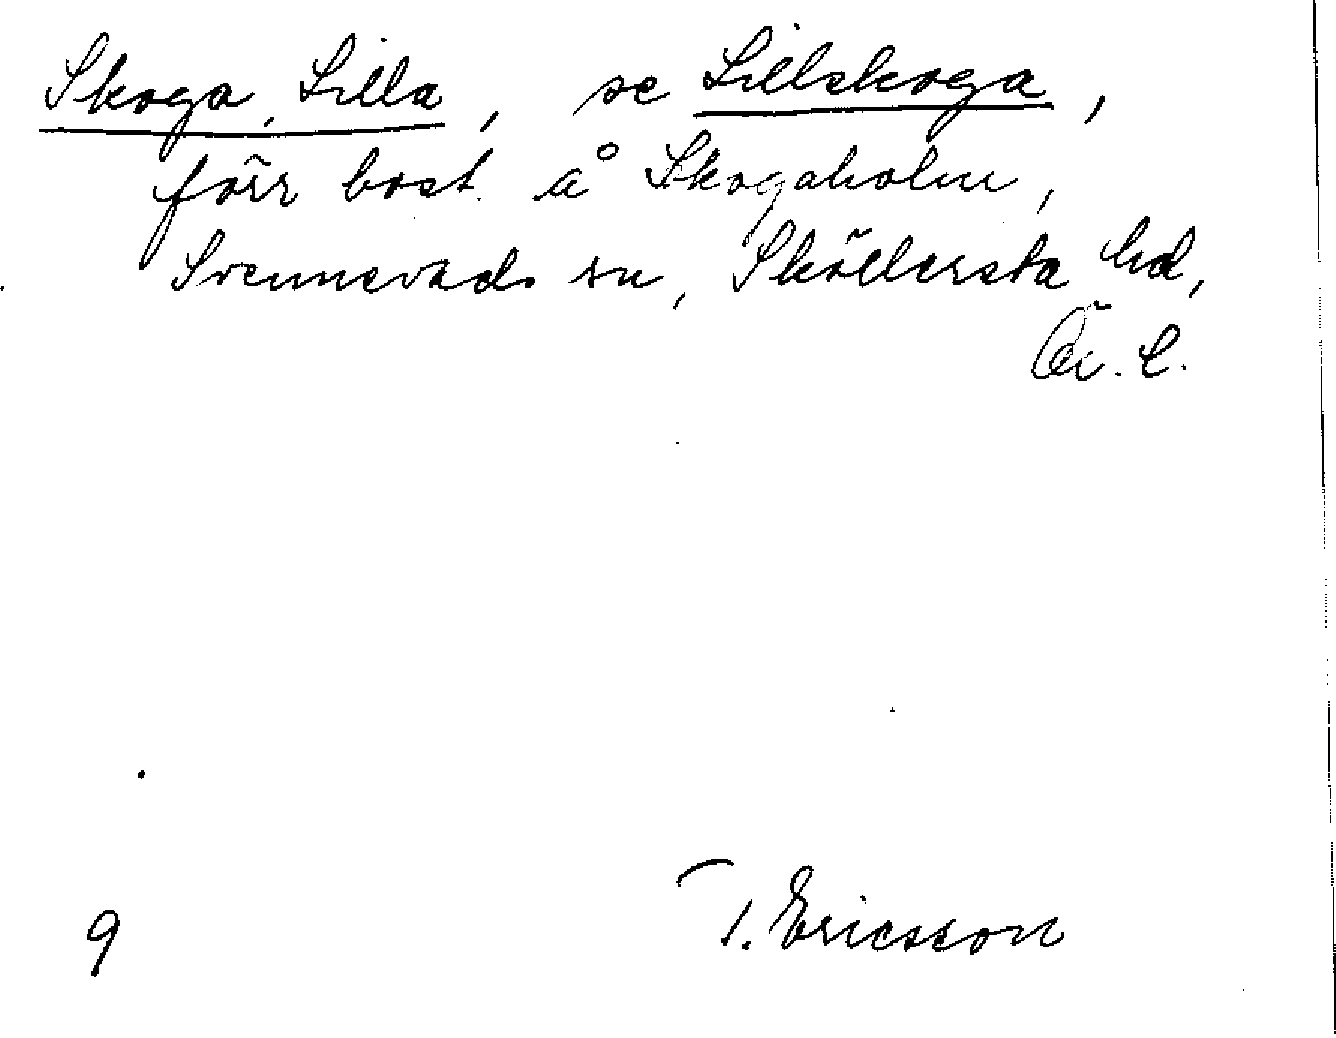 Skoga, Lilla, se Lillskoga,
förr bost. å Skogaholm,
Svennevads sn, Sköllersta hd,
Ör. l.
T. Ericsson
9